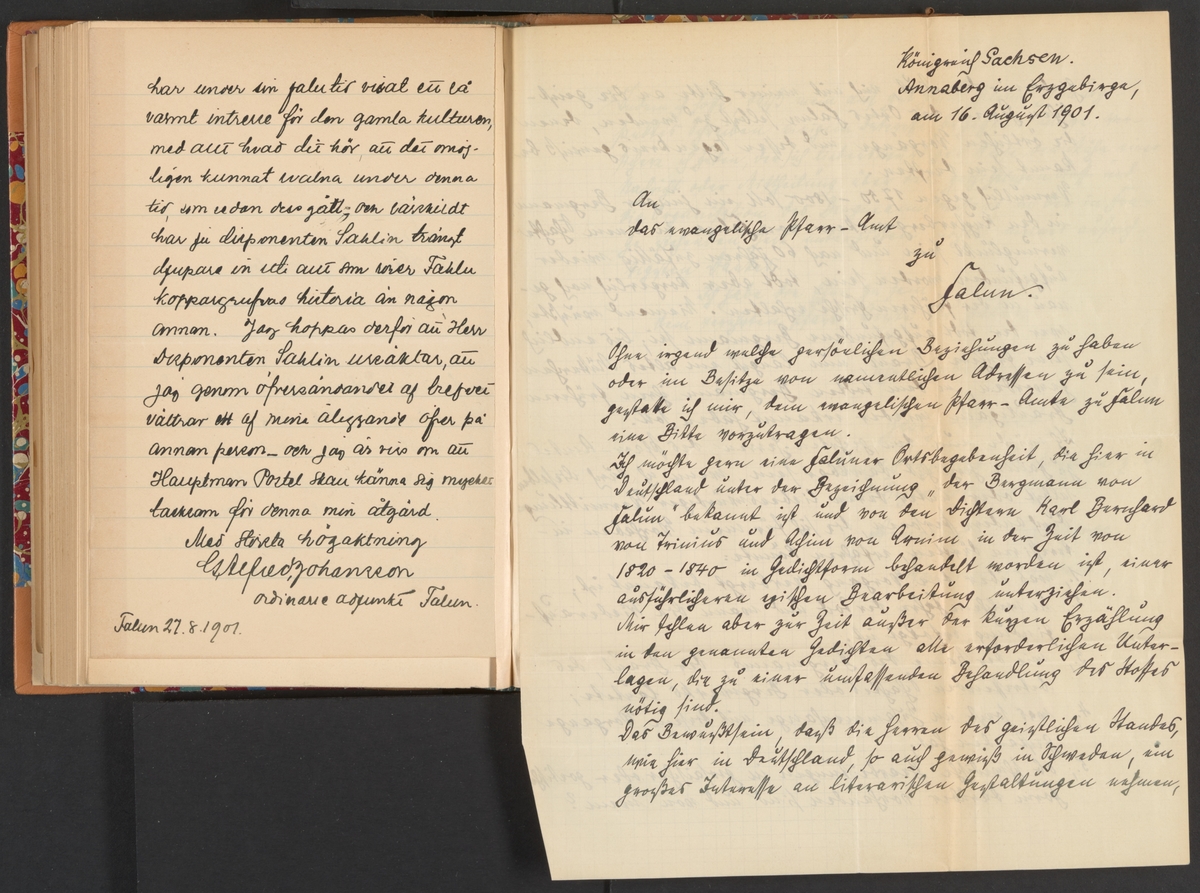 har under sin falutid visat ett så
varmt intresse för den gamla kulturen,
med allt hvad dit hör, att det omöj-
ligen kunnat svalna under denna
tid, som sedan dess gått, och särskildt
har ju disponenten Sahlin trängt
djupare in uti allt som rörer Falu
koppargrufvas historia än någon
annan. Jag hoppas derför att Herr
Disponenten Sahlin ursäktar, att
jag genom öfversändandet af brefvet
vältrar ett af mina åligganden öfver på
annan person – och jag är viss om att
Hauptman Portel skall känna sig mycket
tacksam för denna min åtgärd.
Med största högaktning
G. Alfred Johansson
ordinarie adjunkt Falun.
Falun 27.8.1901.
Königreich Sachsen.
Annaberg im Erzgebirge,
am 16. August 1901.
An
das evangelische Pfarr-Amt
zu
Falun.
Ohne irgend welche persönlichen Beziehungen zu haben
oder im Besitze von namentlichen Adressen zu sein,
gestatte ich mir, dem evangelischen Pfarr-Amte zu Falun
eine Bitte vorzutragen.
Ich möchte gern eine Faluner Ortsbegebenheit, die hier in
Deutschland unter der Bezeichnung „der Bergmann von
Falun“ bekannt ist und von den Dichtern Karl Bernhard
von Trinius und Achim von Arnim in der Zeit von
1820–1840 in Gedichtform behandelt worden ist, einer
ausführlicheren epischen Bearbeitung unterziehen.
Mir fehlen aber zur Zeit außer der kurzen Erzählung
in den genannten Gedichten alle erforderlichen Unter-
lagen, die zu einer umfassenden Behandlung des Stoffes
nötig sind.
Das Bewußtsein, daß die Herren des geistlichen Standes,
wie hier in Deutschland, so auch gewiß in Schweden, ein
großes Interesse an literarischen Gestaltungen nehmen,